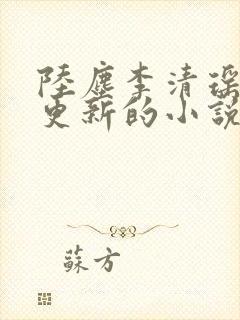 陸塵李清瑶
更新的小說
蘇方